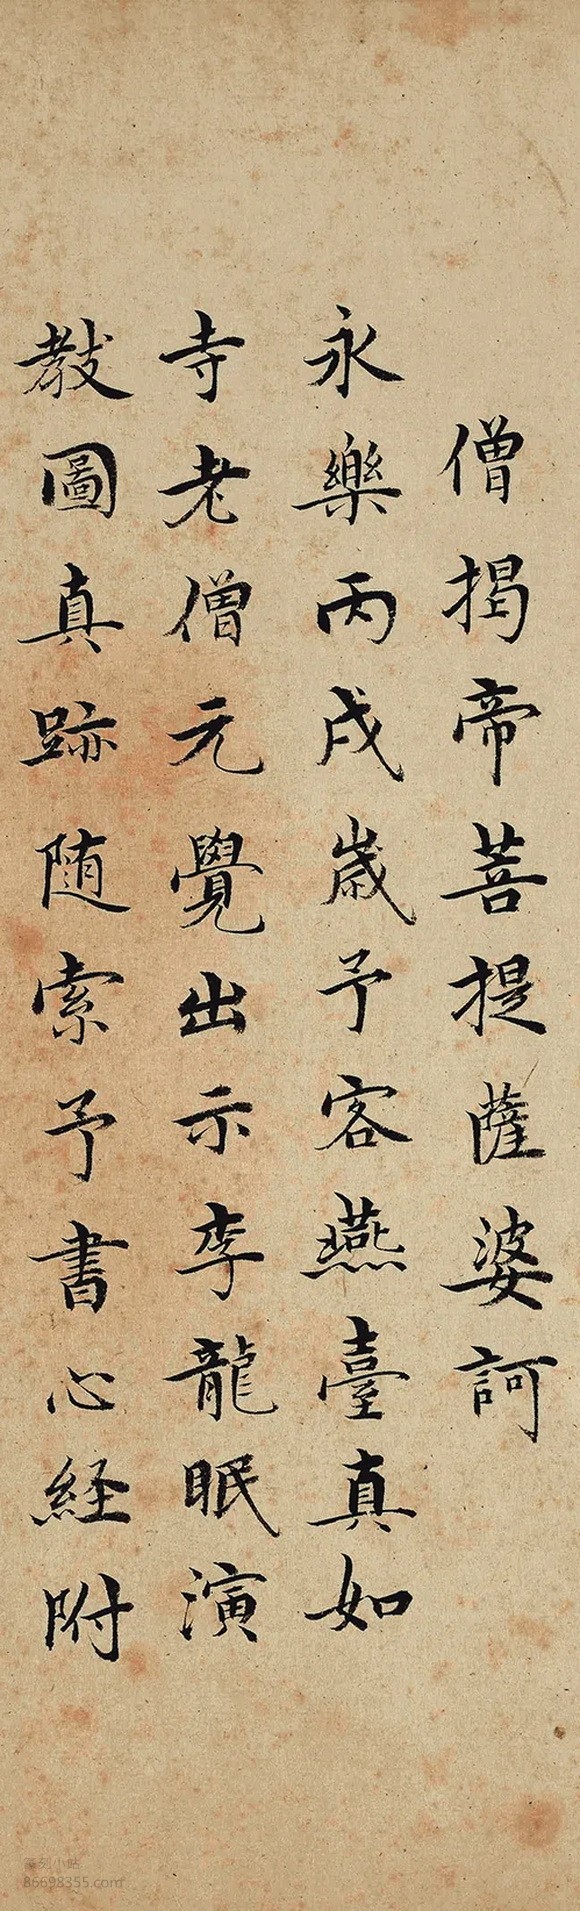 僧揭帝菩提薩婆訶
永樂丙戌歲予客燕臺真如
寺老僧元覺出示李龍眠演
教圖真跡随索予書心経附
篆刻小站
86698355.com